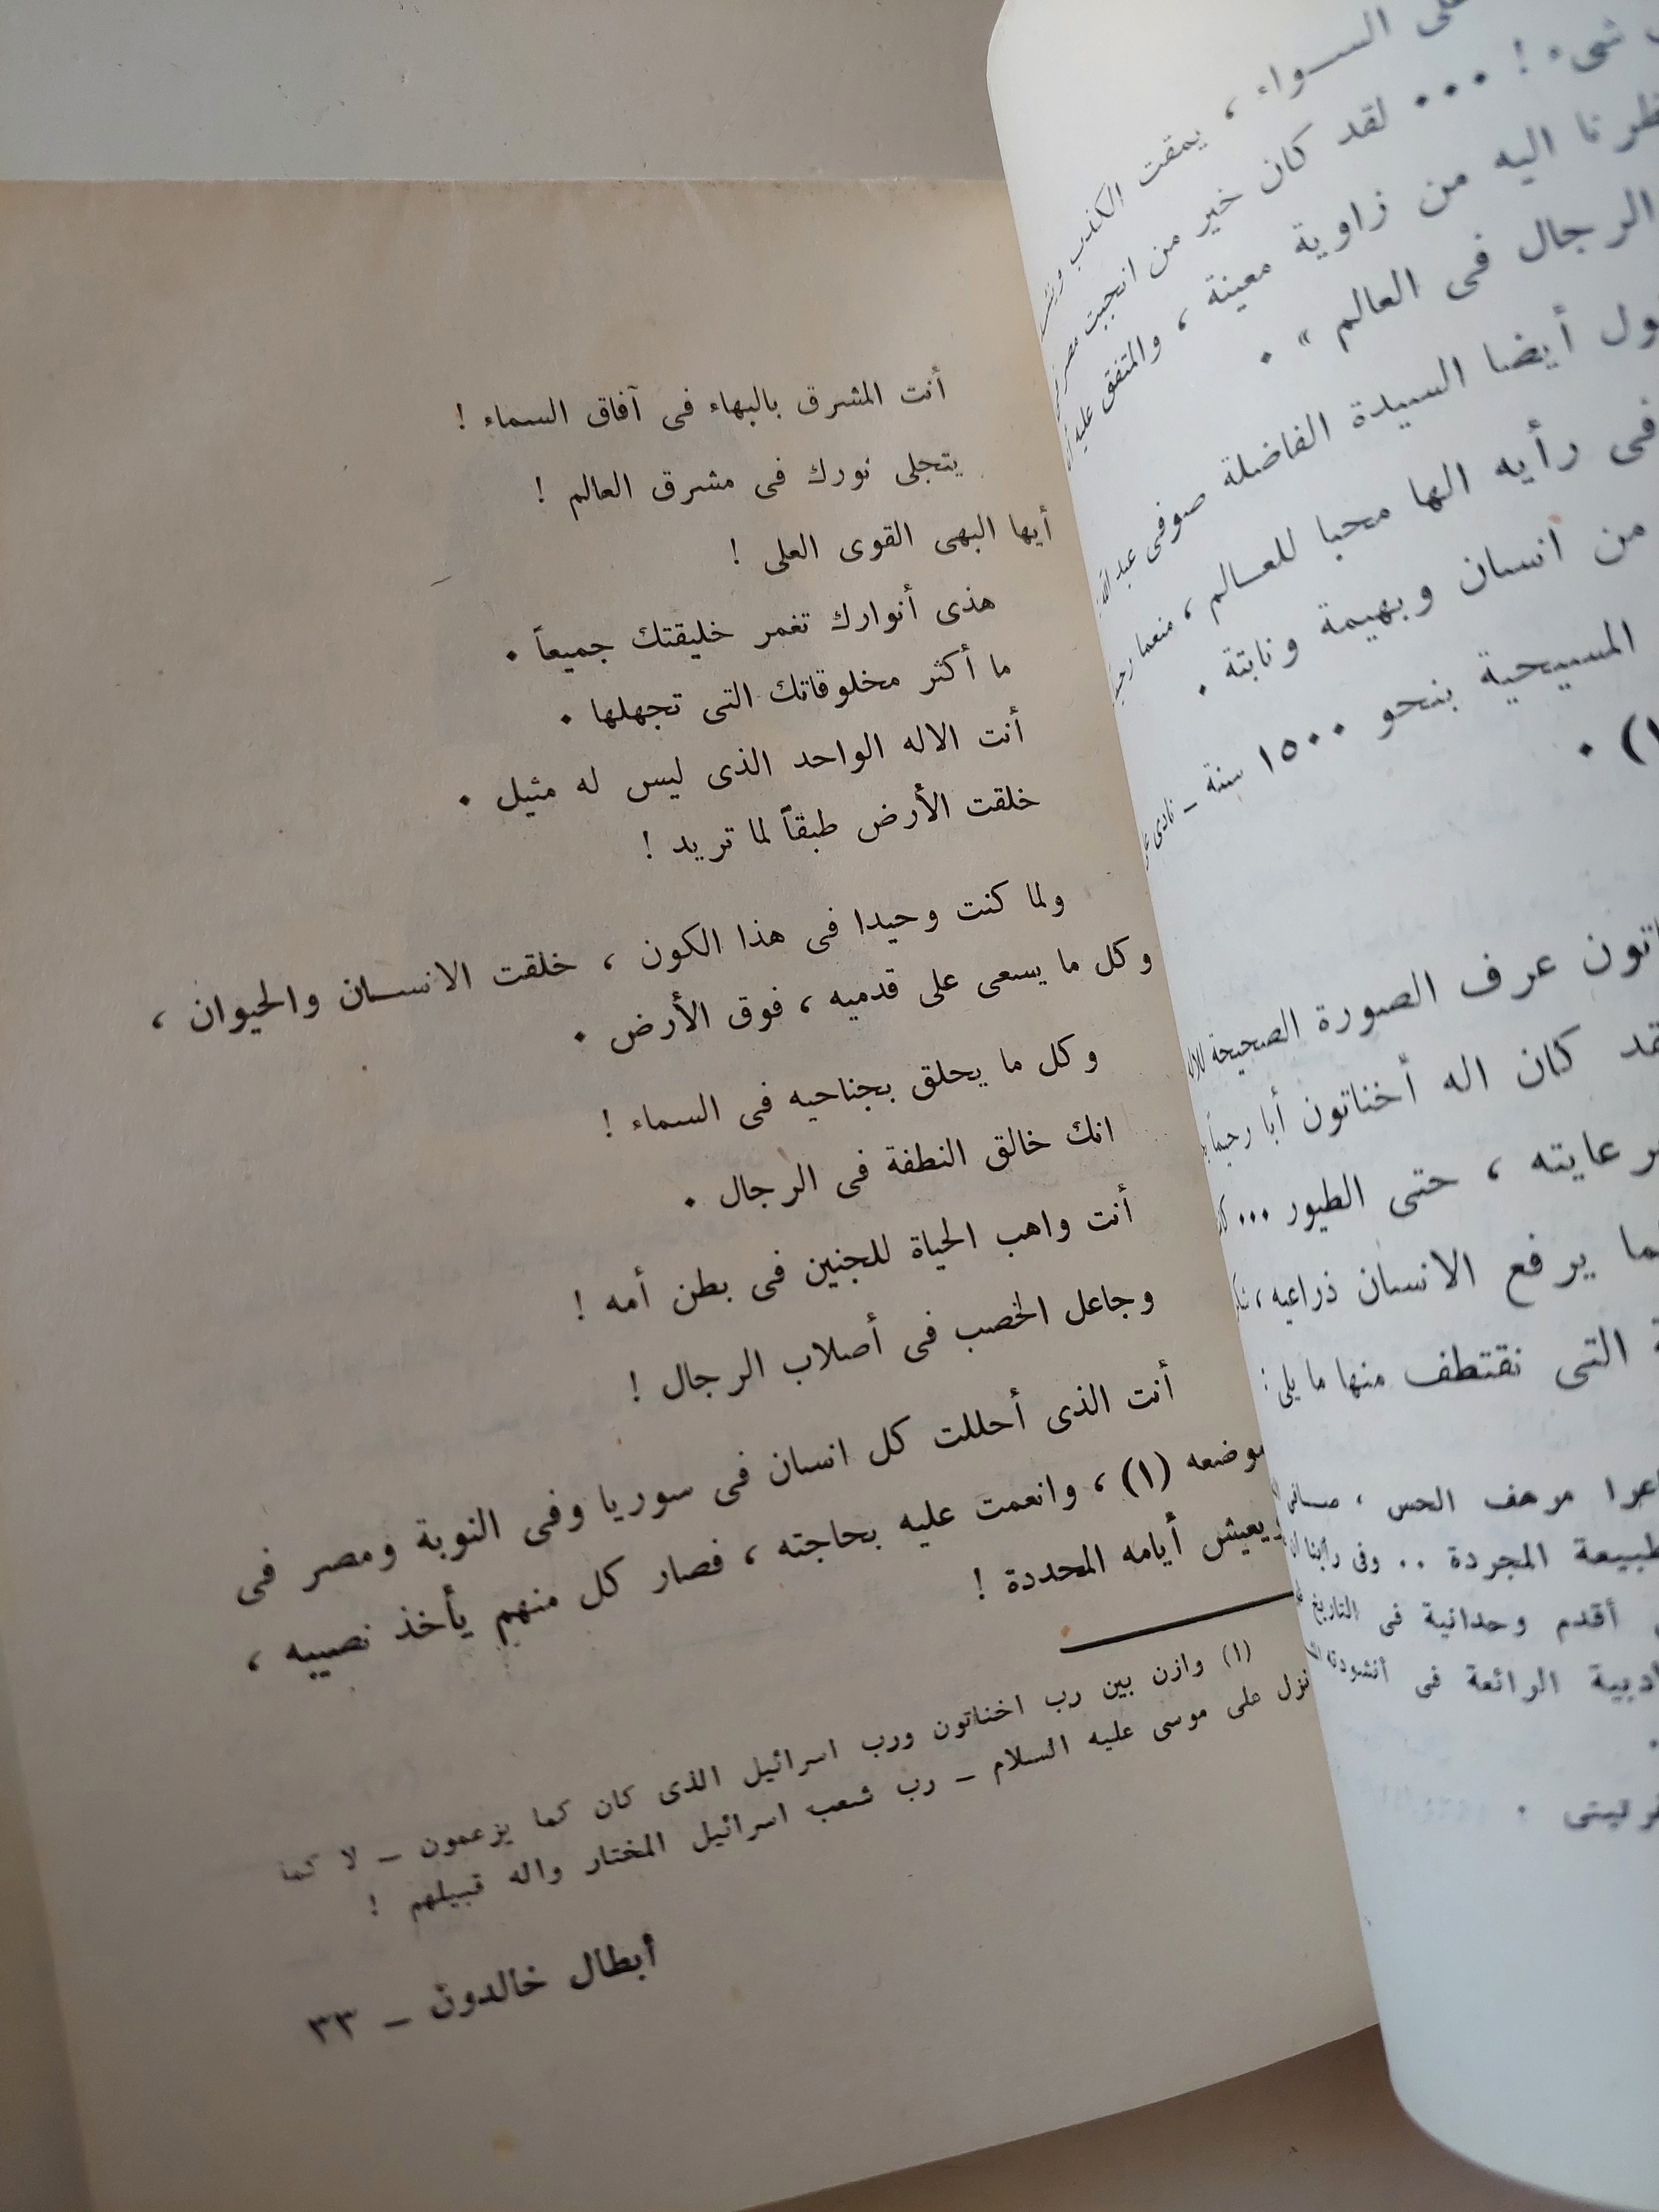 السواء ، يمقت الكذب
شىء ! ... لقد كان خير من انجبت مصر
نظرنا اليه من زاوية معينة ، والمتفق عليه
الرجال فى العالم » .
أيضا السيدة الفاضلة صوفى عبد الله
فى رأيه الها محبا للعالم ، منعما
من انسان وبهيمة ونابتة .
المسيحية بنحو ١٥٠٠ سنة – نادى
عرف الصورة الصحيحة
كان اله أخناتون أبا رحيما
عايته ، حتى الطيور ...
يرفع الانسان ذراعيه ،
التى نقتطف منها ما يلى :
مرهف الحس ،
المجردة .. وفى رأينا
أقدم وحدانية فى التاريخ
الرائعة فى أنشودته
أنت المشرق بالبهاء فى آفاق السماء !
يتجلى نورك فى مشرق العالم !
أيها البهى القوى العلى !
هذى أنوارك تغمر خليقتك جميعاً .
ما أكثر مخلوقاتك التى تجهلها .
أنت الاله الواحد الذى ليس له مثيل .
خلقت الأرض طبقاً لما تريد !
ولما كنت وحيدا فى هذا الكون ، خلقت الانسان والحيوان ،
وكل ما يسعى على قدميه ، فوق الأرض .
وكل ما يحلق بجناحيه فى السماء !
انك خالق النطفة فى الرجال .
أنت واهب الحياة للجنين فى بطن أمه !
وجاعل الخصب فى أصلاب الرجال !
أنت الذى أحللت كل انسان فى سوريا وفى النوبة ومصر فى
موضعه (١) ، وانعمت عليه بحاجته ، فصار كل منهم يأخذ نصيبه ،
ويعيش أيامه المحددة !
(١) وازن بين رب اخناتون ورب اسرائيل الذى كان كما يزعمون – لا كما
نزل على موسى عليه السلام – رب شعب اسرائيل المختار واله قبيلهم !
أبطال خالدون – ٣٣